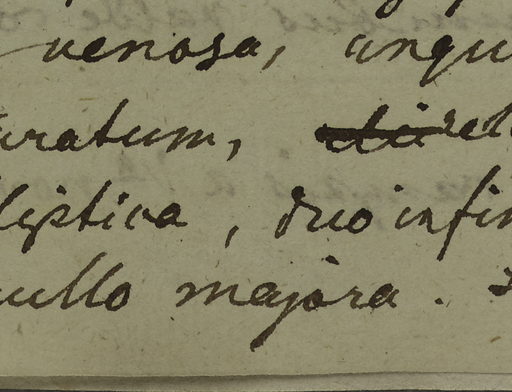 venosa, angu
uratum,
liptica, duo infi
ullo majora.